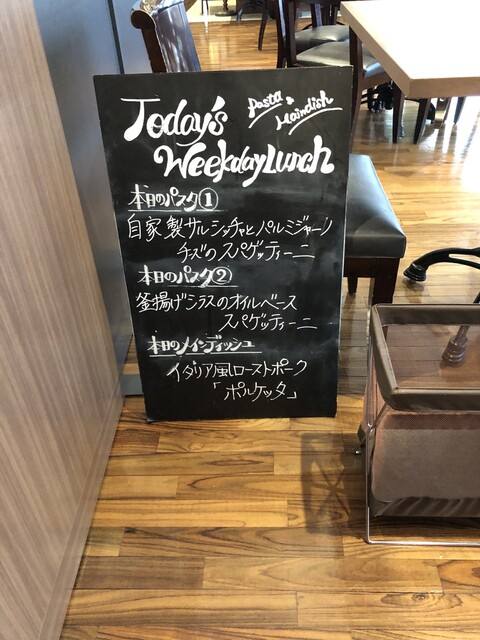 Today's
Pasta & Maindish
Weekday Lunch
本日のパスタ①
自家製サルシッチャとパルミジャーノ
チーズのスパゲッティーニ
本日のパスタ②
釜揚げシラスのオイルベース
スパゲッティーニ
本日のメインディッシュ
イタリア風ローストポーク
「ポルケッタ」